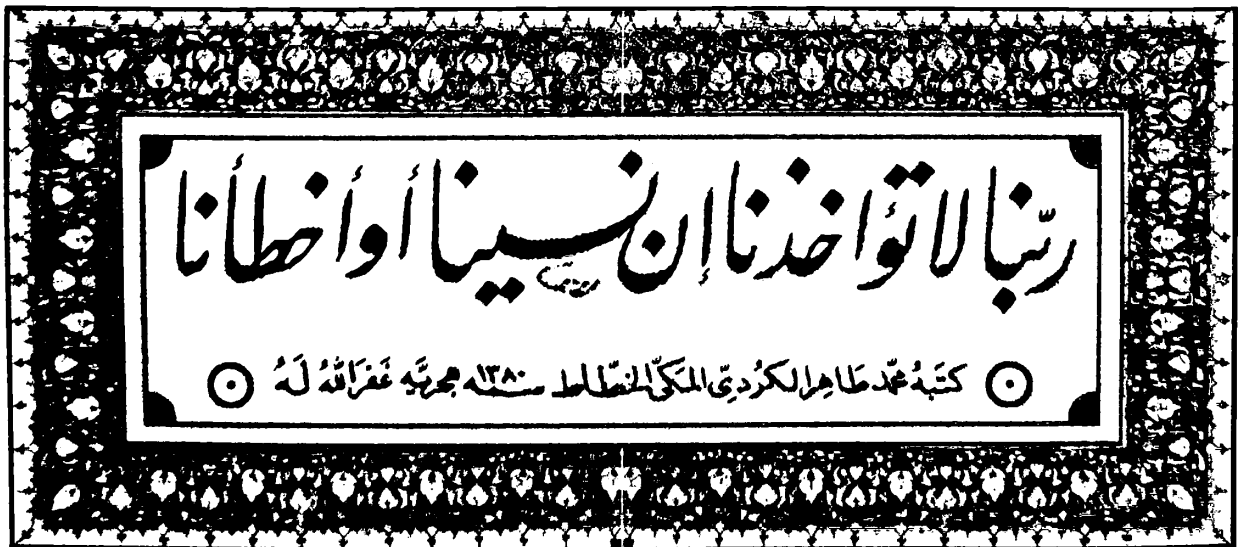 ربّنا لا تؤاخذنا إن نسينا أو أخطأنا
كتَبَهُ محمّد طَاهِر الكردِىّ المكىّ الخطّاط سنة ١٣٨٠ هجريَّه غَفَرَ اللهُ لَهُ